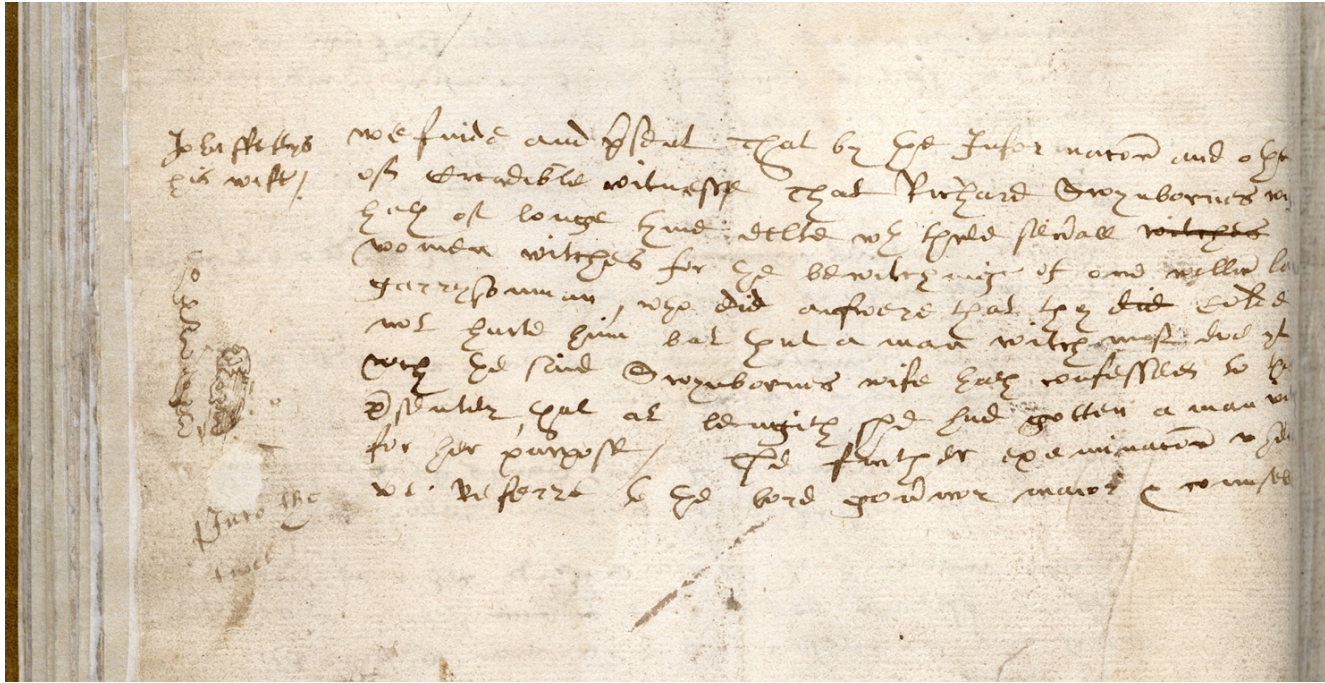 his wife /
we finde and p̃sent That by the Informac̃on and othe
oth Creadible witnesse That Richard Swynbornes wi
hath of longe tyme delte wth three seũall witches
women witches for the bewitching of one willm̃ la
garrysonman, who did answere that they did Colde
not hurte him but that a man witch must doe yt
wch the said Swynbornes wife hath confessed to the
p̃senter, that at lengith she had gotten a man wi
for her purpose / The further exeminac̃on wher
we Referre to the Lord goũnor maior & counsel